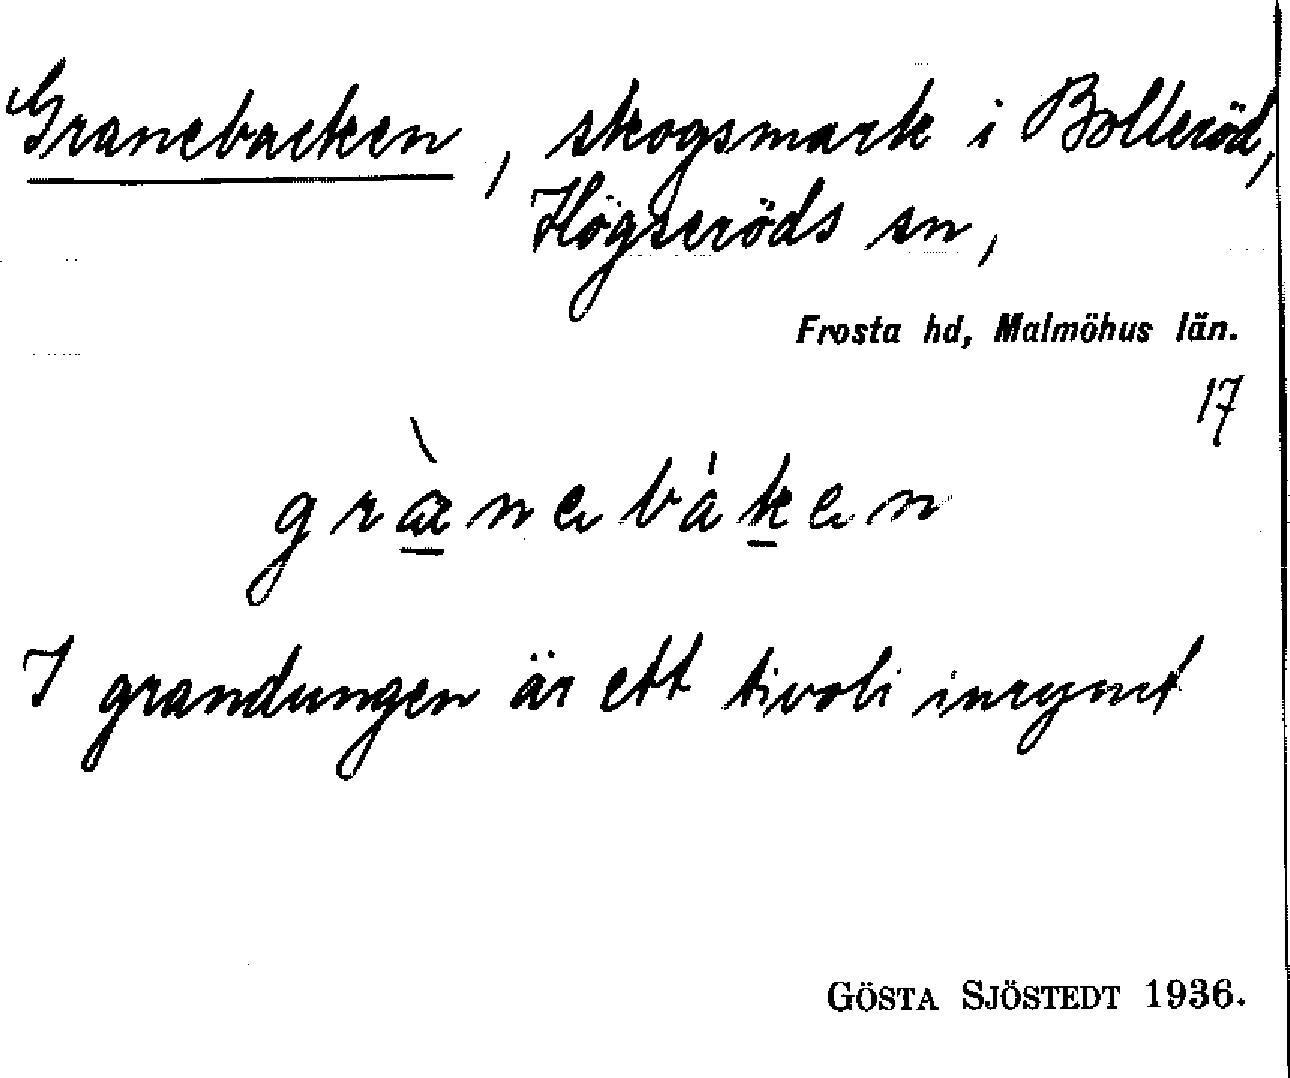 Granebacken, skogsmark i Bolleröd,
Högseröds sn,
Frosta hd, Malmöhus län.
17
græ̀nebáken
I grandungen är ett tivoli inrymt
GÖSTA SJÖSTEDT 1936.